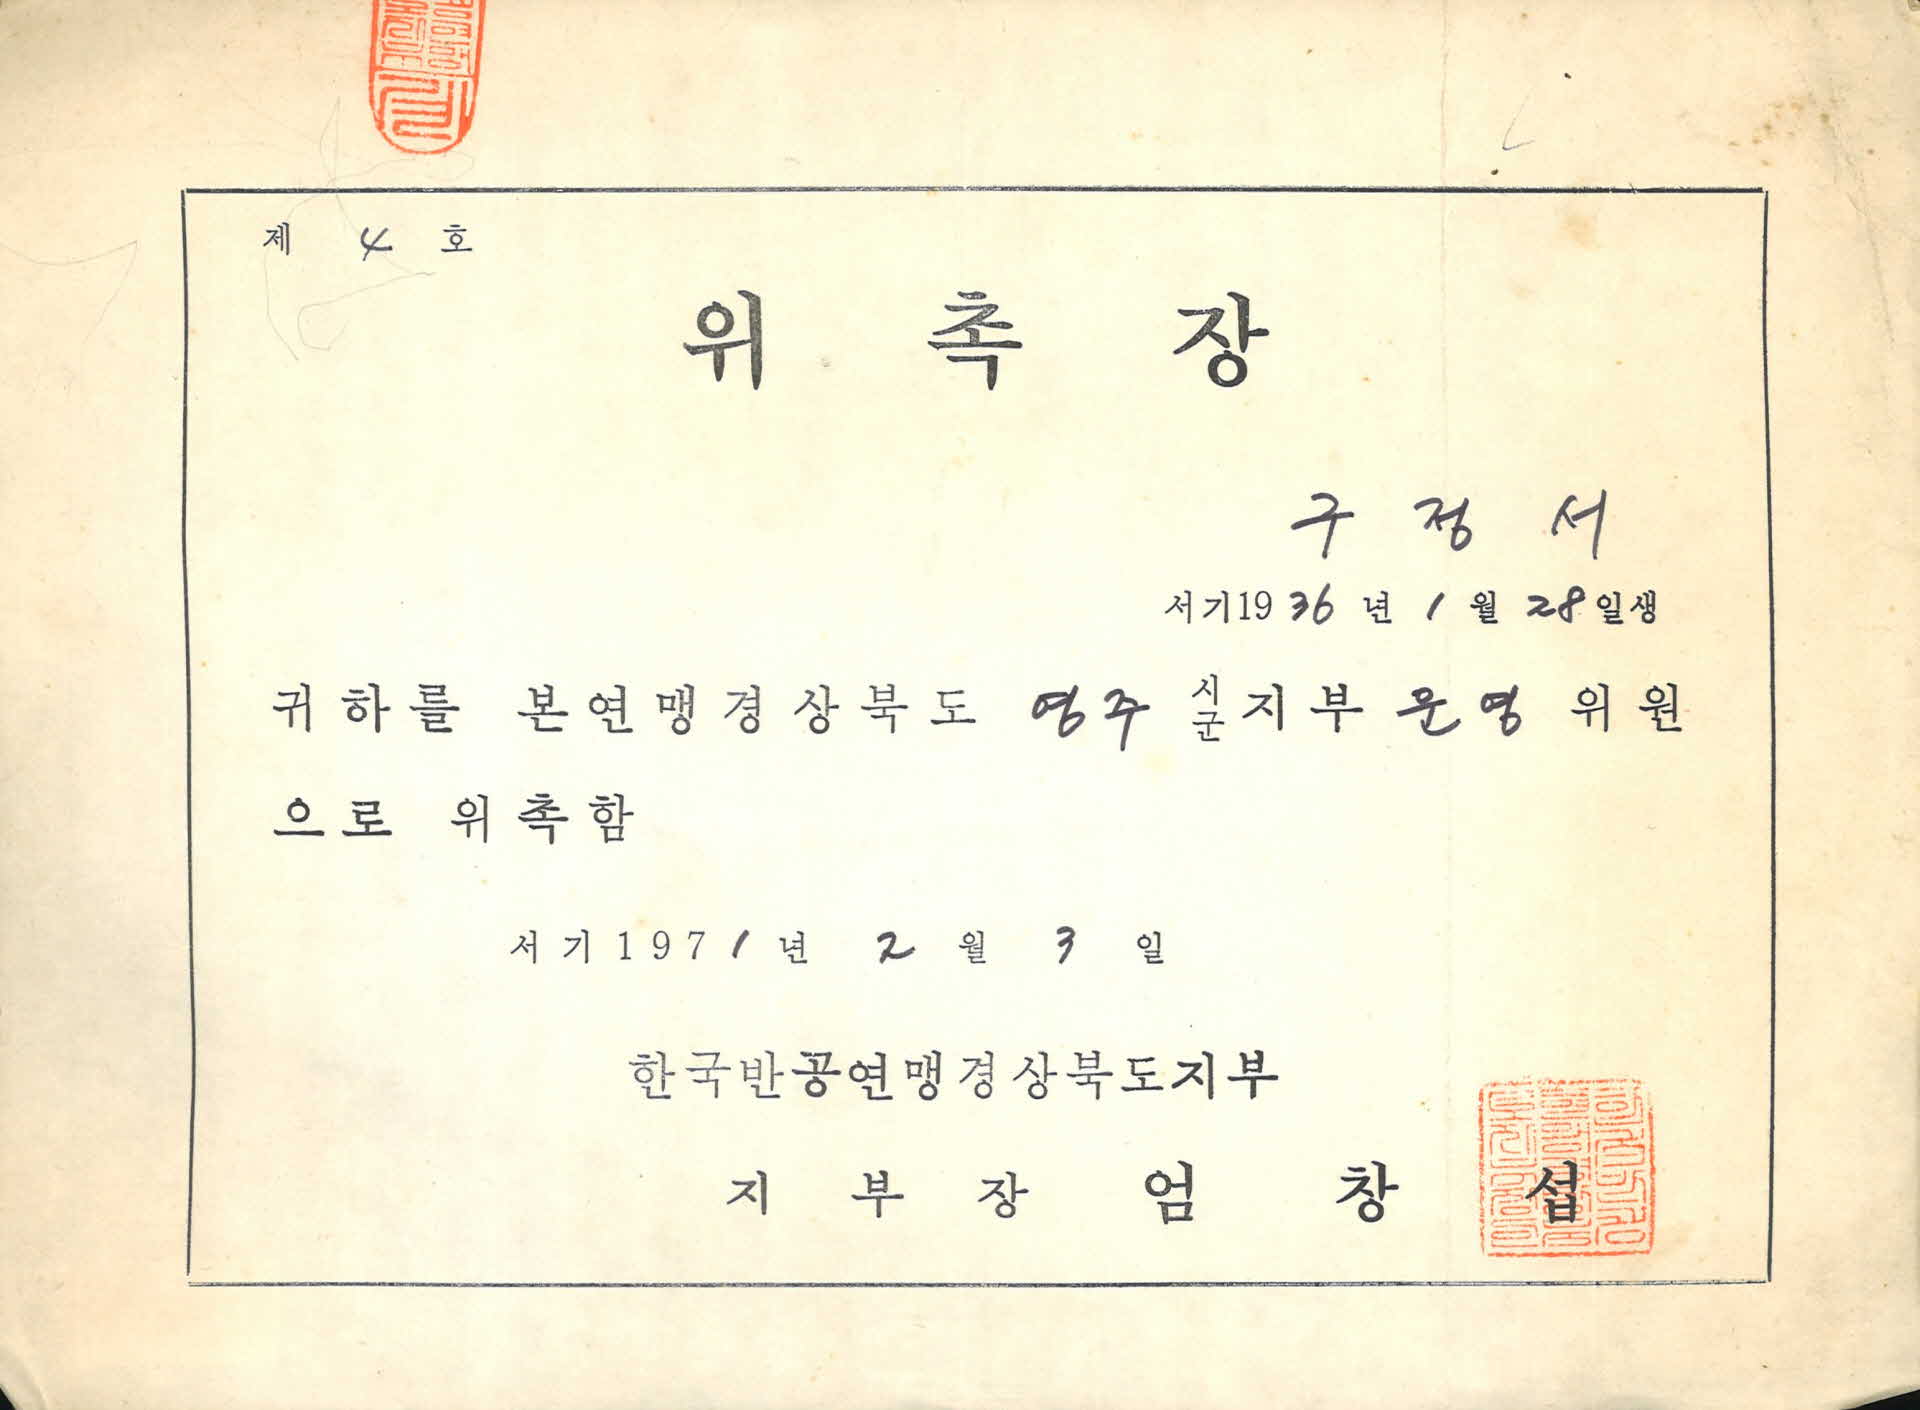 제 4 호
위 촉 장
구 정 서
서기1936년 1월 28일생
귀하를 본연맹경상북도 영주 시군 지부 운영 위원
으로 위촉함
서기 1971년 2월 3일
한국반공연맹경상북도지부
지부장 엄 창 섭